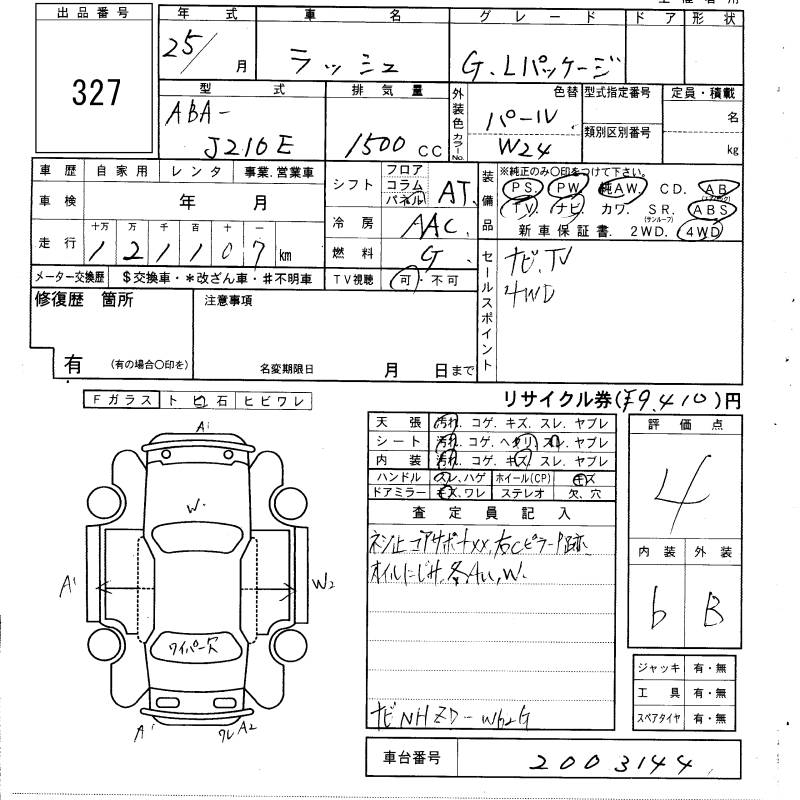 出品番号
327
年 式 車 名 グレード ドア 形状
25/ 月 ラッシュ G.Lパッケージ
型 式 排気量 外装色 色替 カラーNo. 型式指定番号 定員・積載
ABA-
J210E 1500 CC パール W24 類別区別番号 名 kg
車歴 自家用 レンタ 事業.営業車
車検 年 月
走行 十万 万 千 百 十 一
121107 km
メーター交換歴 $交換車・*改ざん車・#不明車
シフト フロア コラム パネル AT
冷房 AAC
燃料 G
TV視聴 可・不可
装備品 ※純正のみ〇印をつけて下さい。
PS. PW. 純AW. CD. AB (エアバック)
TV. ナビ. カワ. SR. (サンルーフ) ABS
新車保証書. 2WD. 4WD
セールスポイント
ナビ、TV
4WD
修復歴 箇所 注意事項
有 (有の場合〇印を) 名変期限日 月 日まで
リサイクル券(¥9,410)円
Fガラス トビ石 ヒビワレ
天張 汚れ. コゲ. キズ. スレ. ヤブレ
シート 汚れ. コゲ. ヘタリ. スレ. ヤブレ
内装 汚れ. コゲ. キズ. スレ. ヤブレ
ハンドル スレ. ハゲ ホイール(CP) キズ
ドアミラー キズ. ワレ ステレオ 欠. 穴
査定員記入
ネジ止コアサポナXX、右CピラーP跡
オイルにじみ、各AU、W.
評価点
4
内装 外装
b B
A1
W.
A1 W2
ワイパー欠
A1 ワレ A2
ジャッキ 有・無
工具 有・無
スペアタイヤ 有・無
ナビNHZD-W62G
車台番号 2003144